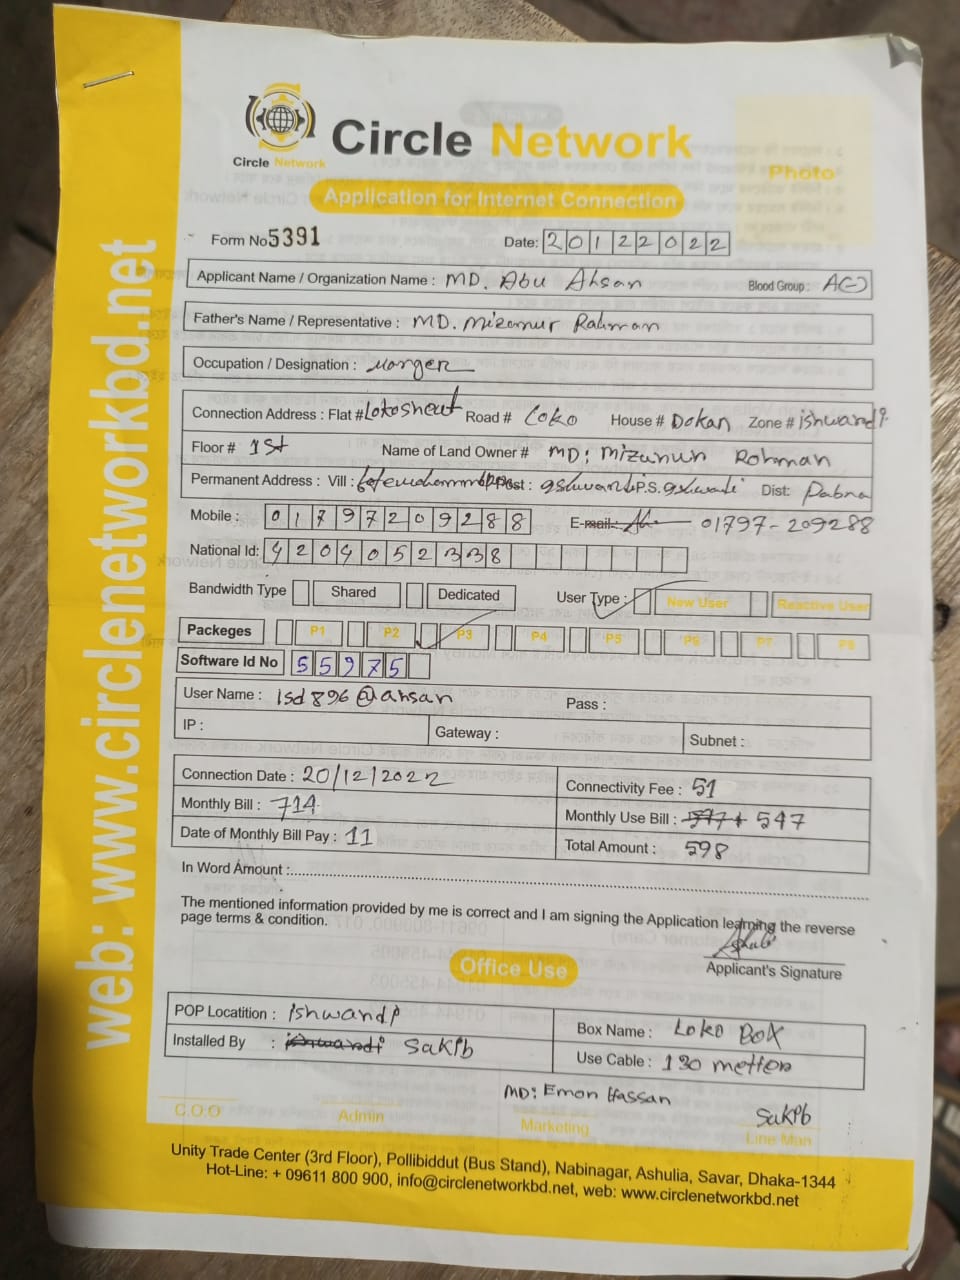 web: www.circlenetworkbd.net
Circle Network
Circle Network
Photo
Application for Internet Connection
Form No 5391 Date: 20122022
Applicant Name / Organization Name : MD. Abu Ahsan Blood Group : A(-)
Father's Name / Representative : MD. Mizanur Rahman
Occupation / Designation :
Connection Address : Flat # Lokosheat Road # Loko House # Dokan Zone # ishwardi
Floor # 1st Name of Land Owner # MD: Mizunun Rohman
Permanent Address : Vill : Post : P.S. Dist : Pabna
Mobile : 01797209288 E-mail: 01797-209288
National Id: 4204052338
Bandwidth Type Shared Dedicated User Type : New User Reactive User
Packeges P1 P2 P3 P4 P5 P6 P7 P8
Software Id No 55975
User Name : isd896@ahsan Pass :
IP : Gateway : Subnet :
Connection Date : 20/12/2022 Connectivity Fee : 51
Monthly Bill : 714 Monthly Use Bill : 547
Date of Monthly Bill Pay : 11 Total Amount : 598
In Word Amount :
The mentioned information provided by me is correct and I am signing the Application learning the reverse
page terms & condition.
Applicant's Signature
Office Use
POP Locatition : ishwardi Box Name : Loko Box
Installed By : Sakib Use Cable : 130 metter
MD: Emon Hassan
Sakib
C.O.O Admin Marketing Line Man
Unity Trade Center (3rd Floor), Pollibiddut (Bus Stand), Nabinagar, Ashulia, Savar, Dhaka-1344
Hot-Line: + 09611 800 900, info@circlenetworkbd.net, web: www.circlenetworkbd.net